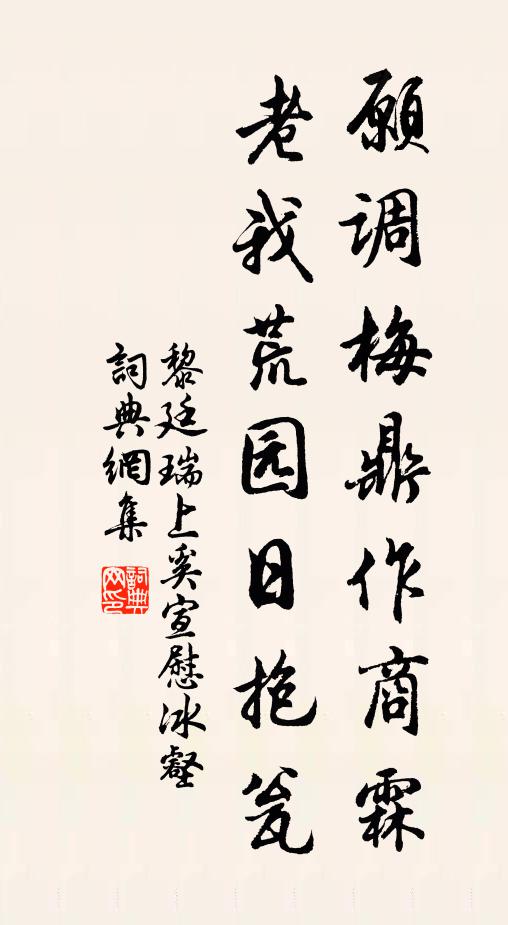 願调梅鼎作商霖
老我荒园日抱瓮
黎廷瑞上奚宣慰冰壑
詞典網集
詞典網印